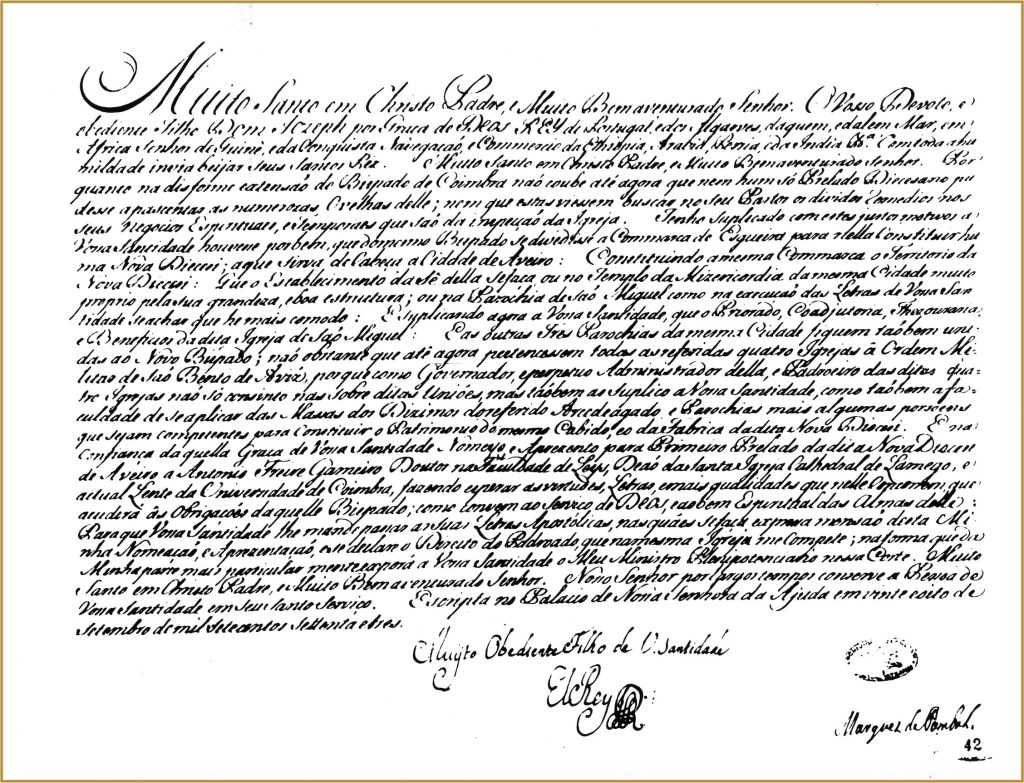 Muito Santo em Christo Padre, e Muito Bemaventurado Senhor. O Vosso Devoto, e
obediente Filho Dom Jozeph por Graça de Deos REY de Portugal, edos Algarves, daquem, edalem Mar, em
Africa Senhor de Guiné, e da Conquista Navegação, e Commercio da Ethiopia, Arabia, Persia, e da India &.ª Com toda a hu
mildade invia beijar seus Santos Pez. Muito Santo em Christo Padre, e Muito Bemaventurado Senhor. Por
quanto na disforme extensão do Bispado de Coimbra naõ coube até agora que nem hum só Prelado Diocesano pu
desse apascentar as numerozas Ovelhas delle; nem que estas viessem buscar no seu Pastor os dividos remedios nos
seus negocios Espirituaes, e Temporaes que saõ da inspecçaõ da Igreja. Tenho Suplicado com estes justos motivos a
Vossa Santidade houvesse por bem, que do mesmo Bispado se dividisse a Commarca de Esgueira para nella Constituir hu
ma Nova Diecesi; a que sirva de Cabeça a Cidade de Aveiro: Constituindo a mesma Commarca o Territorio da
Nova Diecesi: Que o Establecimento da Sé della se faça, ou no Templo da Mizericordia da mesma Cidade muito
proprio pela sua grandeza, e boa estructura; ou na Parochia de Saõ Miguel como na execuçaõ das Letras de Vossa San
tidade se achar que he mais comodo: E suplicando agora a Vossa Santidade, que o Priorado, Coadjutoria, Thezouraria,
e Beneficios da dita Igreja de Saõ Miguel: E as outras Tres Parochias da mesma Cidade fiquem taõbem uni
das ao Novo Bispado; naõ obstante que até agora pertencessem todas as referidas quatro Igrejas á Ordem Mi
litar de Saõ Bento de Aviz, porque como Governador, e perpetuo Administrador della, e Padroeiro das ditas qua
tro Igrejas naõ só consinto nas Sobreditas Uniões, mas taõbem as Suplico a Vossa Santidade, como taõbem a fa
culdade de se aplicar das Massas dos Dizimos do referido Arcediágado, e Parochias mais algumas porsoens
que sejam competentes para Constituir o Patrimonio do mesmo Cabido, e o da Fabrica da dita Nova Diecesi. E na
Confiança da quella Graça de Vossa Santidade Nomeyo, e Aprezento para Primeiro Prelado da dita Nova Diocese
de Aveiro a Antonio Freire Gameiro Doutor na Faculdade de Leys, Deaõ da Santa Igreja Cathedral de Lamego, e
actual Lente da Universidade de Coimbra, fazendo esperar as vertudes, Letras, e mais qualidades que nelle concorrem, que
acudirá ás Obrigacões daquelle Bispado, como convem ao Serviço de DEOS, e ao bem Espiritual das Almas delle:
Para que Vossa Santidade lhe mande passar as Suas Letras Apostólicas, nas quáes se faça expressa mensaõ desta Mi
nha Nomeaçaõ, e Aprezentaçaõ, e se declare o Direito do Padroado que na mesma Igreja me Compete; na forma que da
Minha parte mais particularmente exporá a Vossa Santidade o Meu Ministro Plenipotenciario nessa Corte. Muito
Santo em Christo Padre, e Muito Bemaventurado Senhor. Nosso Senhor por largos tempos conserve a Pessoa de
Vossa Santidade em seu Santo Serviço. Escripta no Palacio de Nossa Senhora da Ajuda em vinte e oito de
Setembro de mil setecentos settenta e tres.
Muyto Obediente Filho de V. Santidade
ElRey
Marquez de Pombal.
42